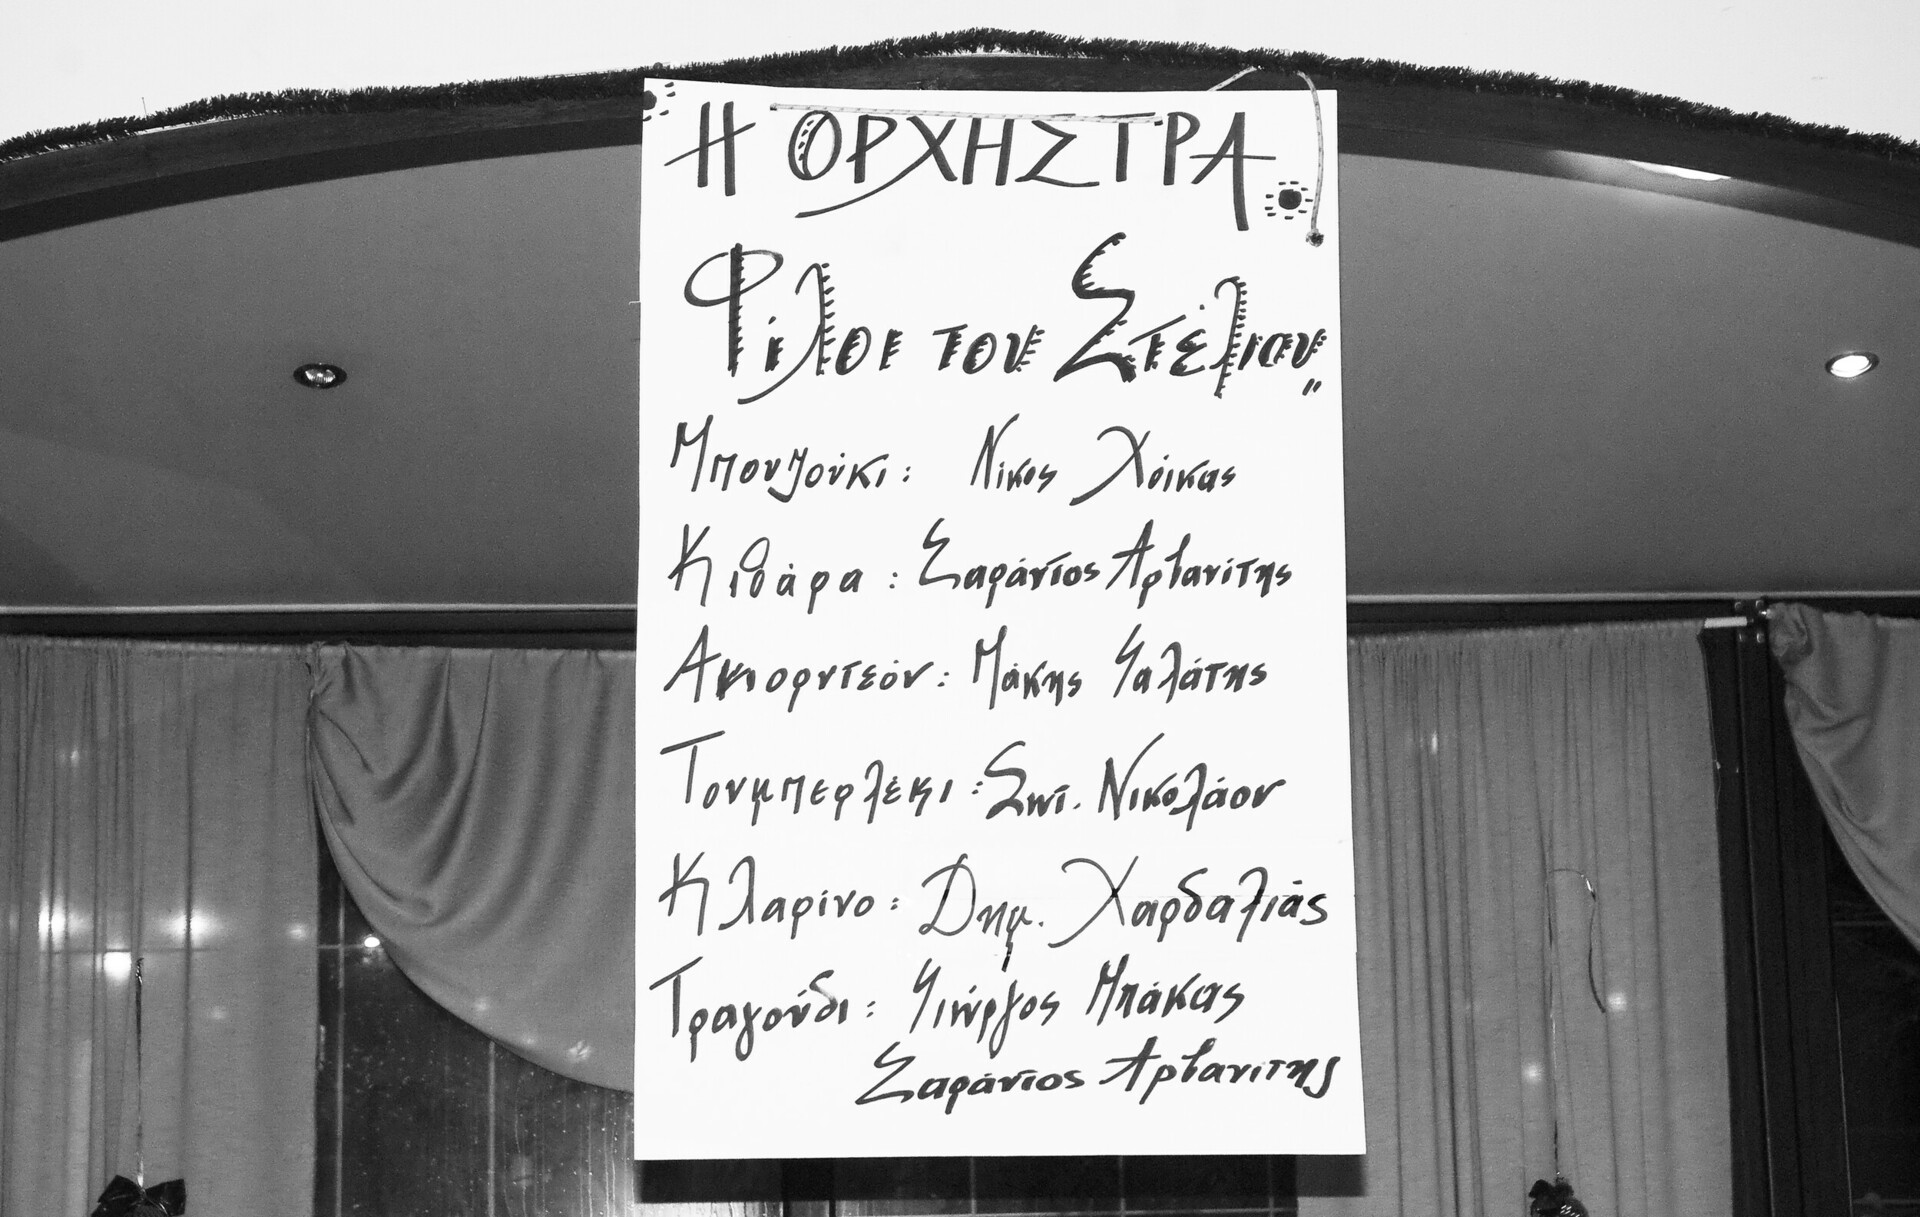 Η ΟΡΧΗΣΤΡΑ
Φίλοι του Στέλιου"
Μπουζούκι: Νίκος Χόικας
Κιθάρα: Σαράντος Αρβανίτης
Ακκορντεόν: Μάκης Γαλάτης
Τουμπερλέκι: Νικολάου
Κλαρίνο: Δημ. Χαρδαλιάς
Τραγούδι: Γιώργος Μπάκας
Σαράντος Αρβανίτης